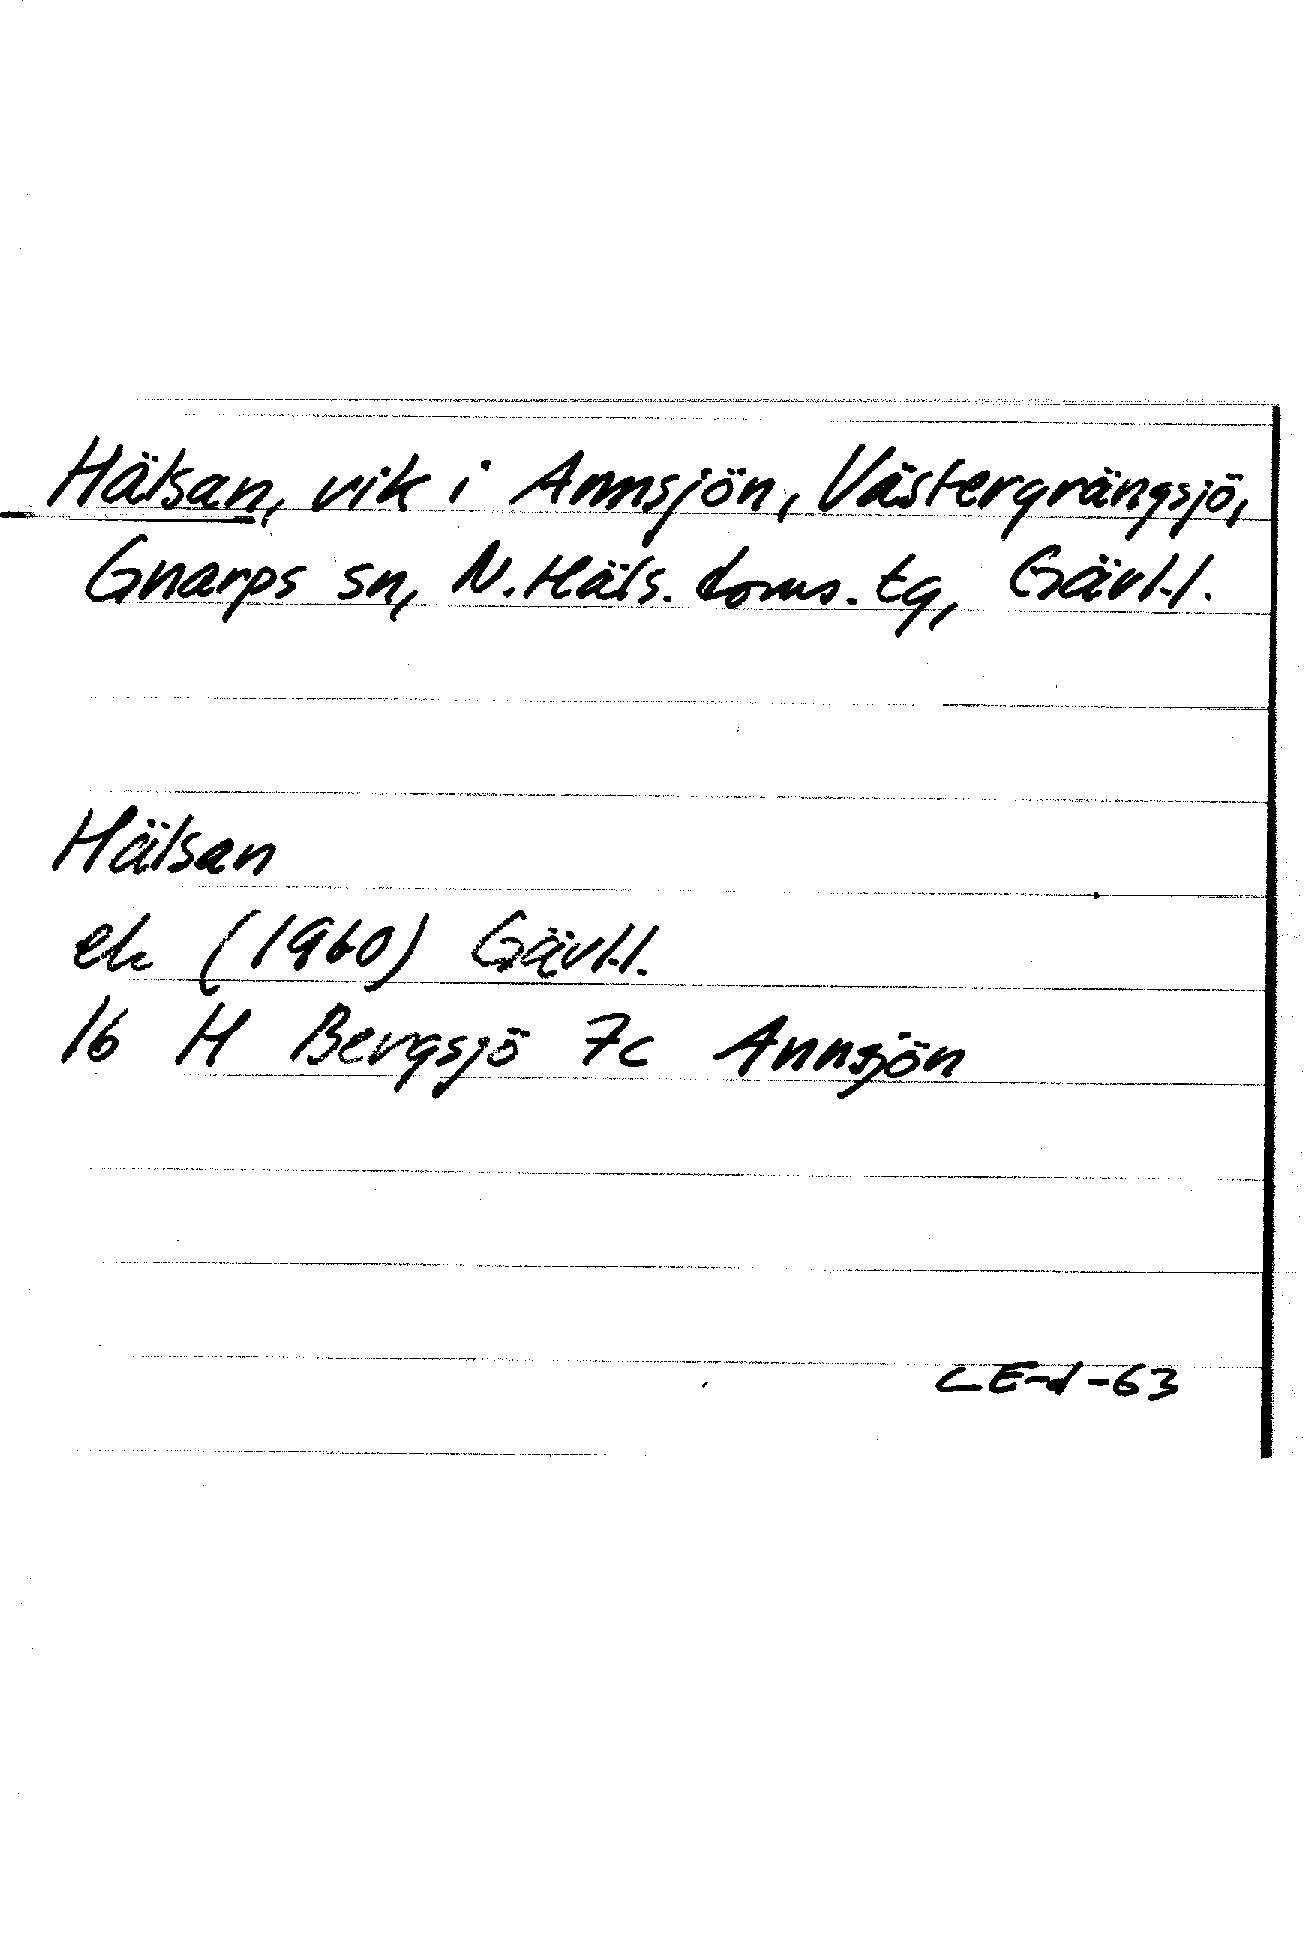 Hälsan, vik i Annsjön, Västergrängsjö,
Gnarps sn, N. Häls. doms. tg, Gävl.l.
Hälsan
ek (1960) Gävl.l.
16 H Bergsjö 7c Annsjön
CE-d-63